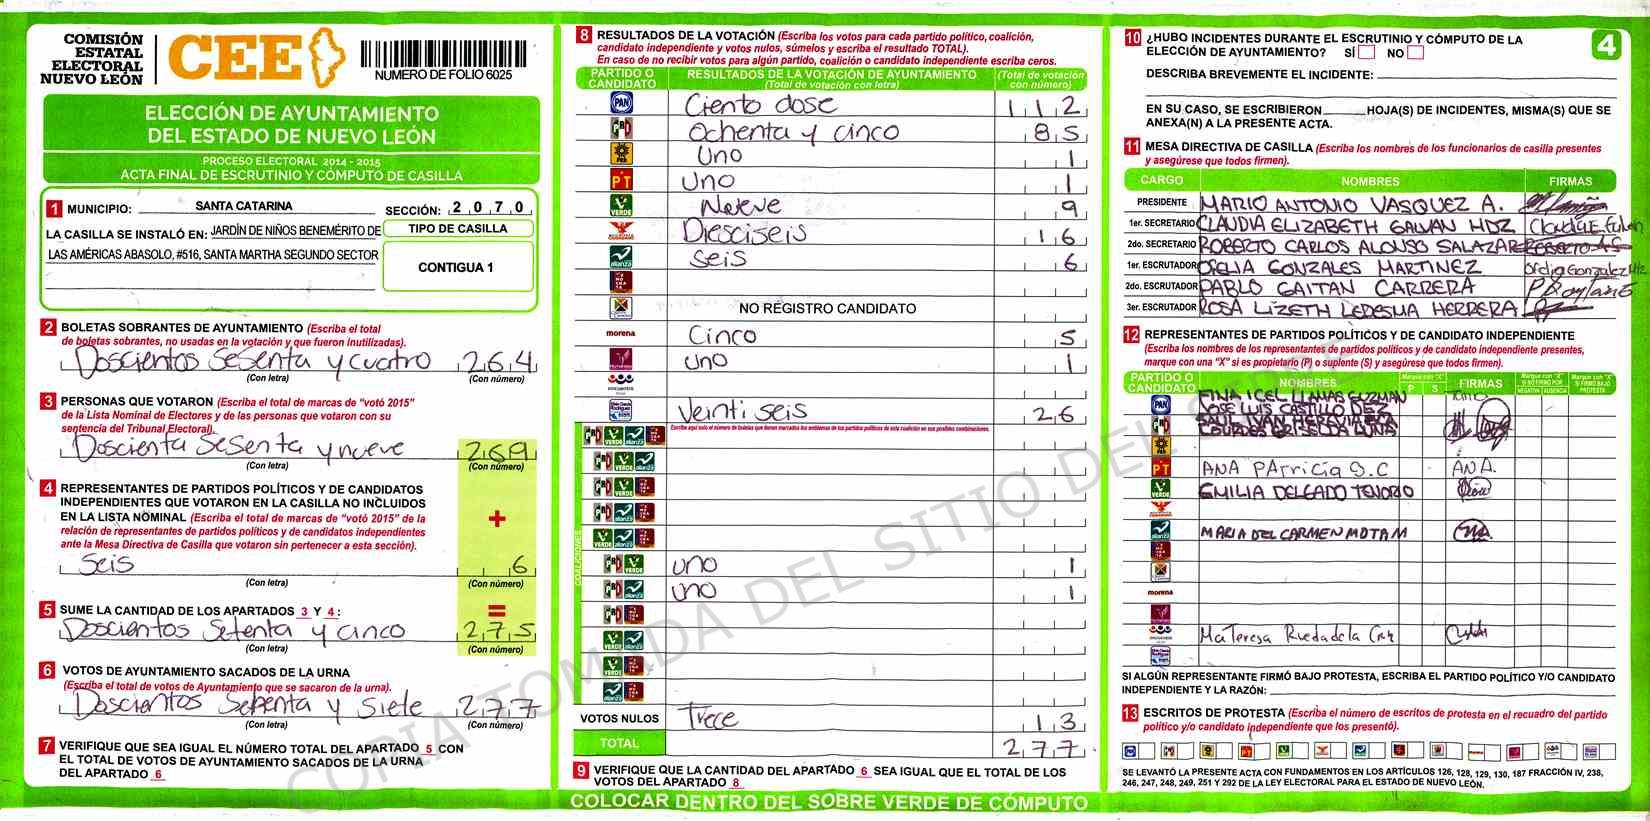 COMISIÓN
ESTATAL
ELECTORAL
NUEVO LEÓN
CEE
NUMERO DE FOLIO 6025
ELECCIÓN DE AYUNTAMIENTO
DEL ESTADO DE NUEVO LEÓN
PROCESO ELECTORAL 2014 - 2015
ACTA FINAL DE ESCRUTINIO Y CÓMPUTO DE CASILLA
1 MUNICIPIO: SANTA CATARINA SECCIÓN: 2 0 7 0
LA CASILLA SE INSTALÓ EN: JARDÍN DE NIÑOS BENEMÉRITO DE
LAS AMÉRICAS ABASOLO, #516, SANTA MARTHA SEGUNDO SECTOR
TIPO DE CASILLA
CONTIGUA 1
2 BOLETAS SOBRANTES DE AYUNTAMIENTO (Escriba el total
de boletas sobrantes, no usadas en la votación y que fueron inutilizadas).
Doscientos Sesenta y cuatro 264
(Con letra) (Con número)
3 PERSONAS QUE VOTARON (Escriba el total de marcas de "votó 2015"
de la Lista Nominal de Electores y de las personas que votaron con su
sentencia del Tribunal Electoral).
Doscienta Sesenta y nueve 269
(Con letra) (Con número)
4 REPRESENTANTES DE PARTIDOS POLÍTICOS Y DE CANDIDATOS
INDEPENDIENTES QUE VOTARON EN LA CASILLA NO INCLUIDOS
EN LA LISTA NOMINAL (Escriba el total de marcas de "votó 2015" de la
relación de representantes de partidos políticos y de candidatos independientes
ante la Mesa Directiva de Casilla que votaron sin pertenecer a esta sección).
+
Seis 6
(Con letra) (Con número)
5 SUME LA CANTIDAD DE LOS APARTADOS 3 Y 4: =
Doscientos Setenta y cinco 275
(Con letra) (Con número)
6 VOTOS DE AYUNTAMIENTO SACADOS DE LA URNA
(Escriba el total de votos de Ayuntamiento que se sacaron de la urna).
Doscientos Setenta y siete 277
(Con letra) (Con número)
7 VERIFIQUE QUE SEA IGUAL EL NÚMERO TOTAL DEL APARTADO 5 CON
EL TOTAL DE VOTOS DE AYUNTAMIENTO SACADOS DE LA URNA
DEL APARTADO 6
8 RESULTADOS DE LA VOTACIÓN (Escriba los votos para cada partido político, coalición,
candidato independiente y votos nulos, súmelos y escriba el resultado TOTAL).
En caso de no recibir votos para algún partido, coalición o candidato independiente escriba ceros.
PARTIDO O CANDIDATO RESULTADOS DE LA VOTACIÓN DE AYUNTAMIENTO (Total de votación con letra) (Total de votación con número)
PAN Ciento dose 112
PRD Ochenta y cinco 85
PRD Uno 1
PT Uno 1
VERDE Nueve 9
Diesciseis 16
alianza Seis 6
NO REGISTRO CANDIDATO
morena Cinco 5
uno 1
encuentro
Veinti seis 26
Escriba aquí solo el número de boletas que tienen marcados los emblemas de los partidos políticos de esta coalición en sus posibles combinaciones.
COALICIONES
uno 1
uno 1
VOTOS NULOS Trece 13
TOTAL 277
9 VERIFIQUE QUE LA CANTIDAD DEL APARTADO 6 SEA IGUAL QUE EL TOTAL DE LOS
VOTOS DEL APARTADO 8
COLOCAR DENTRO DEL SOBRE VERDE DE CÓMPUTO
10 ¿HUBO INCIDENTES DURANTE EL ESCRUTINIO Y CÓMPUTO DE LA
ELECCIÓN DE AYUNTAMIENTO? SÍ NO
4
DESCRIBA BREVEMENTE EL INCIDENTE:
EN SU CASO, SE ESCRIBIERON HOJA(S) DE INCIDENTES, MISMA(S) QUE SE
ANEXA(N) A LA PRESENTE ACTA.
11 MESA DIRECTIVA DE CASILLA (Escriba los nombres de los funcionarios de casilla presentes
y asegúrese que todos firmen).
CARGO NOMBRES FIRMAS
PRESIDENTE MARIO ANTONIO VASQUEZ A.
1er. SECRETARIO CLAUDIA ELIZABETH GALVAN HDZ
2do. SECRETARIO ROBERTO CARLOS ALONSO SALAZAR
1er. ESCRUTADOR OFELIA GONZALES MARTINEZ
2do. ESCRUTADOR PABLO GAITAN CARRERA
3er. ESCRUTADOR ROSA LIZETH LEDESMA HERRERA
12 REPRESENTANTES DE PARTIDOS POLÍTICOS Y DE CANDIDATO INDEPENDIENTE
(Escriba los nombres de los representantes de partidos políticos y de candidato independiente presentes,
marque con una "X" si es propietario (P) o suplente (S) y asegúrese que todos firmen).
PARTIDO O CANDIDATO NOMBRES Marque con "X" P S FIRMAS Marque con "X" SI NO FIRMÓ POR NEGATIVA AUSENCIA Marque con "X" SI FIRMÓ BAJO PROTESTA
PAN LLAMAS GUZMAN
JOSE LUIS CASTILLO DEZ
PT ANA PAtricia S.C ANA.
VERDE EMILIA DELGADO TENORIO
alianza MARIA DEL CARMEN MOTA M
morena
Ma Teresa Rueda de la Cruz
SI ALGÚN REPRESENTANTE FIRMÓ BAJO PROTESTA, ESCRIBA EL PARTIDO POLÍTICO Y/O CANDIDATO
INDEPENDIENTE Y LA RAZÓN:
13 ESCRITOS DE PROTESTA (Escriba el número de escritos de protesta en el recuadro del partido
político y/o candidato independiente que los presentó).
SE LEVANTÓ LA PRESENTE ACTA CON FUNDAMENTOS EN LOS ARTÍCULOS 126, 128, 129, 130, 187 FRACCIÓN IV, 238,
246, 247, 248, 249, 251 Y 292 DE LA LEY ELECTORAL PARA EL ESTADO DE NUEVO LEÓN.
COPIA TOMADA DEL SITIO DEL SIPRE